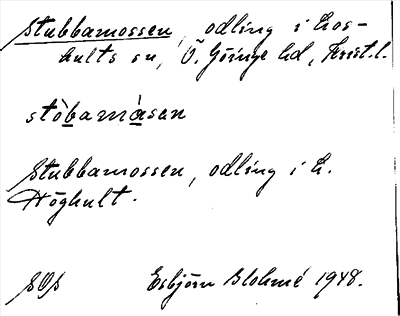 Stubbamossen, odling i Los-
hults sn, Ö. Göinge hd, Krist.l.
stòbamàsen
Stubbamossen, odling i h.
Höghult.
SOS Esbjörn Blohmé 1948.